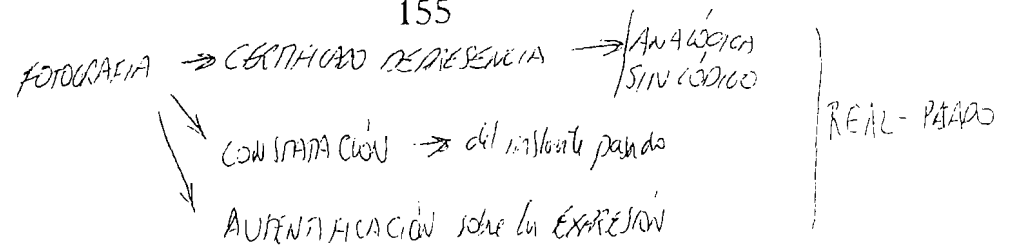 155
FOTOGRAFIA → CERTIFICADO DE PRESENCIA → ANALÓGICA
SIN CÓDIGO
CONSTATACIÓN → del instante pasado
AUTENTIFICACIÓN sobre la EXPRESIÓN
REAL - PASADO